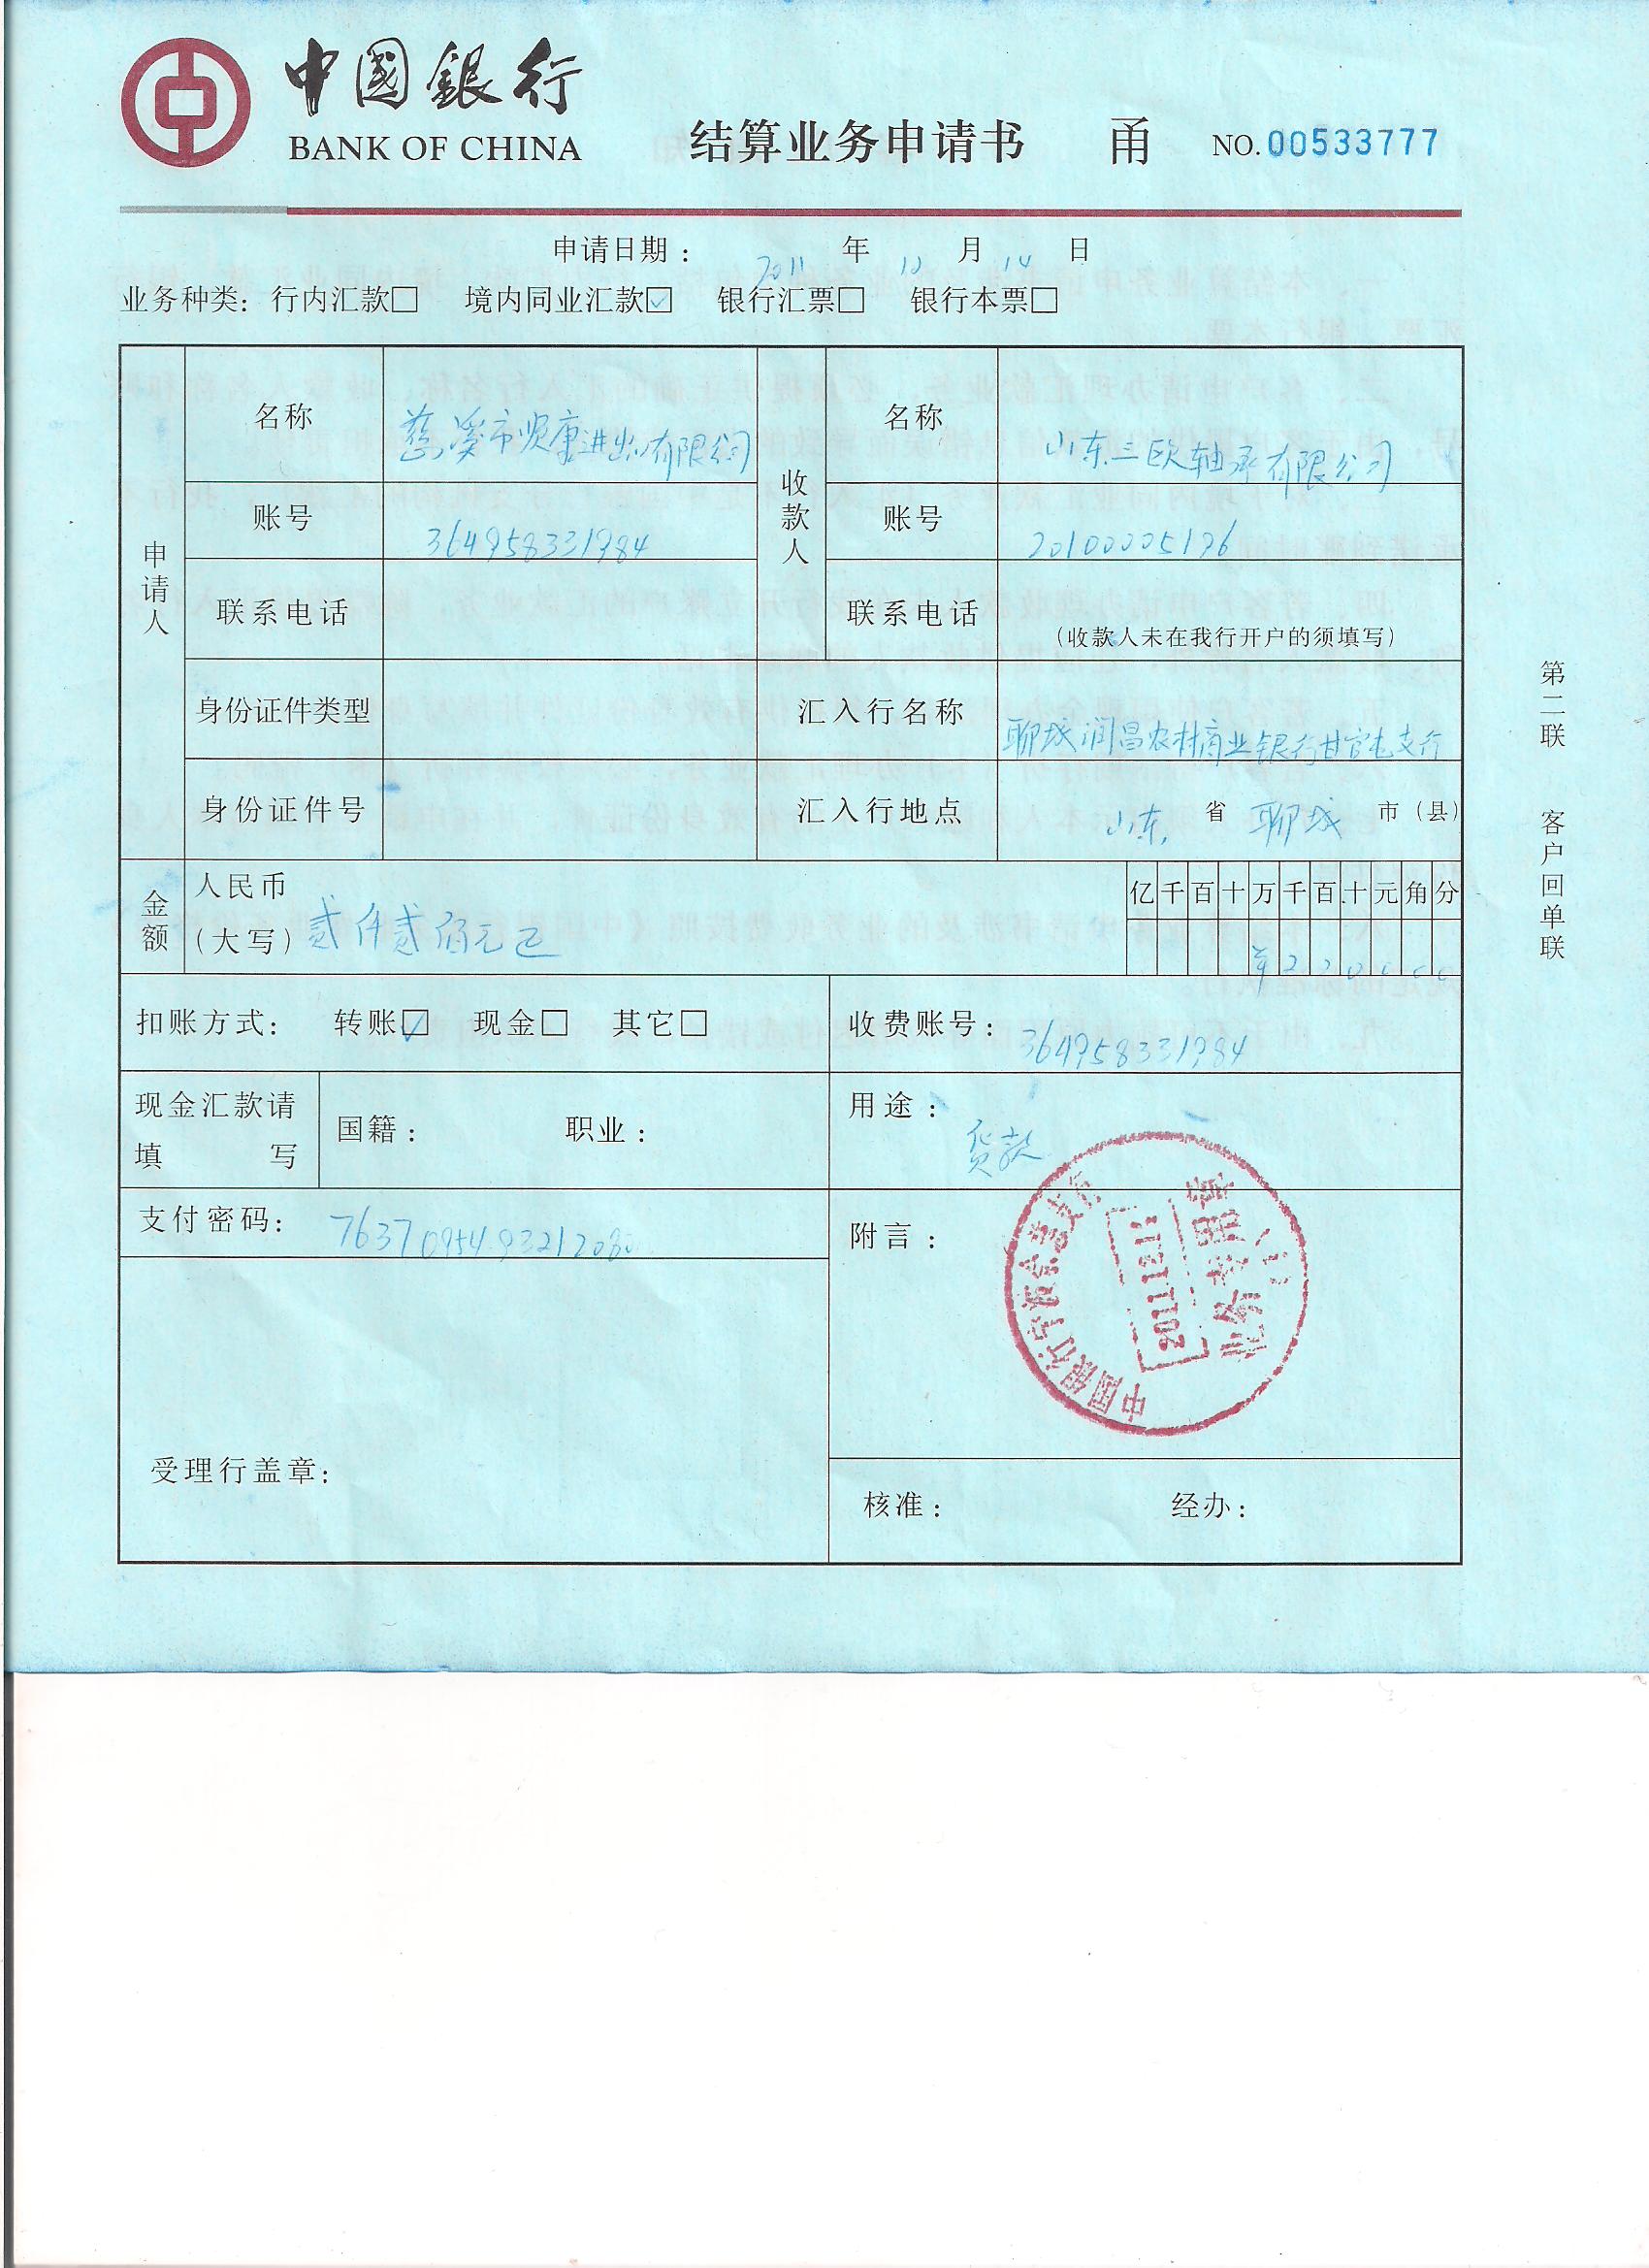 中國銀行
BANK OF CHINA
结算业务申请书 甬 NO.00533777
申请日期： 2011 年 12 月 14 日
业务种类：行内汇款□ 境内同业汇款☑ 银行汇票□ 银行本票□
申请人
名称 慈溪市 进出口有限公司
收款人
名称 山东三欧轴承有限公司
账号 364958331984
账号 20100005196
联系电话
联系电话 （收款人未在我行开户的须填写）
身份证件类型
汇入行名称 聊城润昌农村商业银行甘官屯支行
身份证件号
汇入行地点 山东 省 聊城 市（县）
金额
人民币（大写） 贰仟贰佰元正
亿千百十万千百十元角分
¥220000
扣账方式： 转账☑ 现金□ 其它□
收费账号： 364958331984
现金汇款请填写
国籍： 职业：
用途： 货款
支付密码： 7637 0954 9321 2080
附言：
中国银行宁波
业务专用章
受理行盖章：
核准： 经办：
第二联 客户回单联